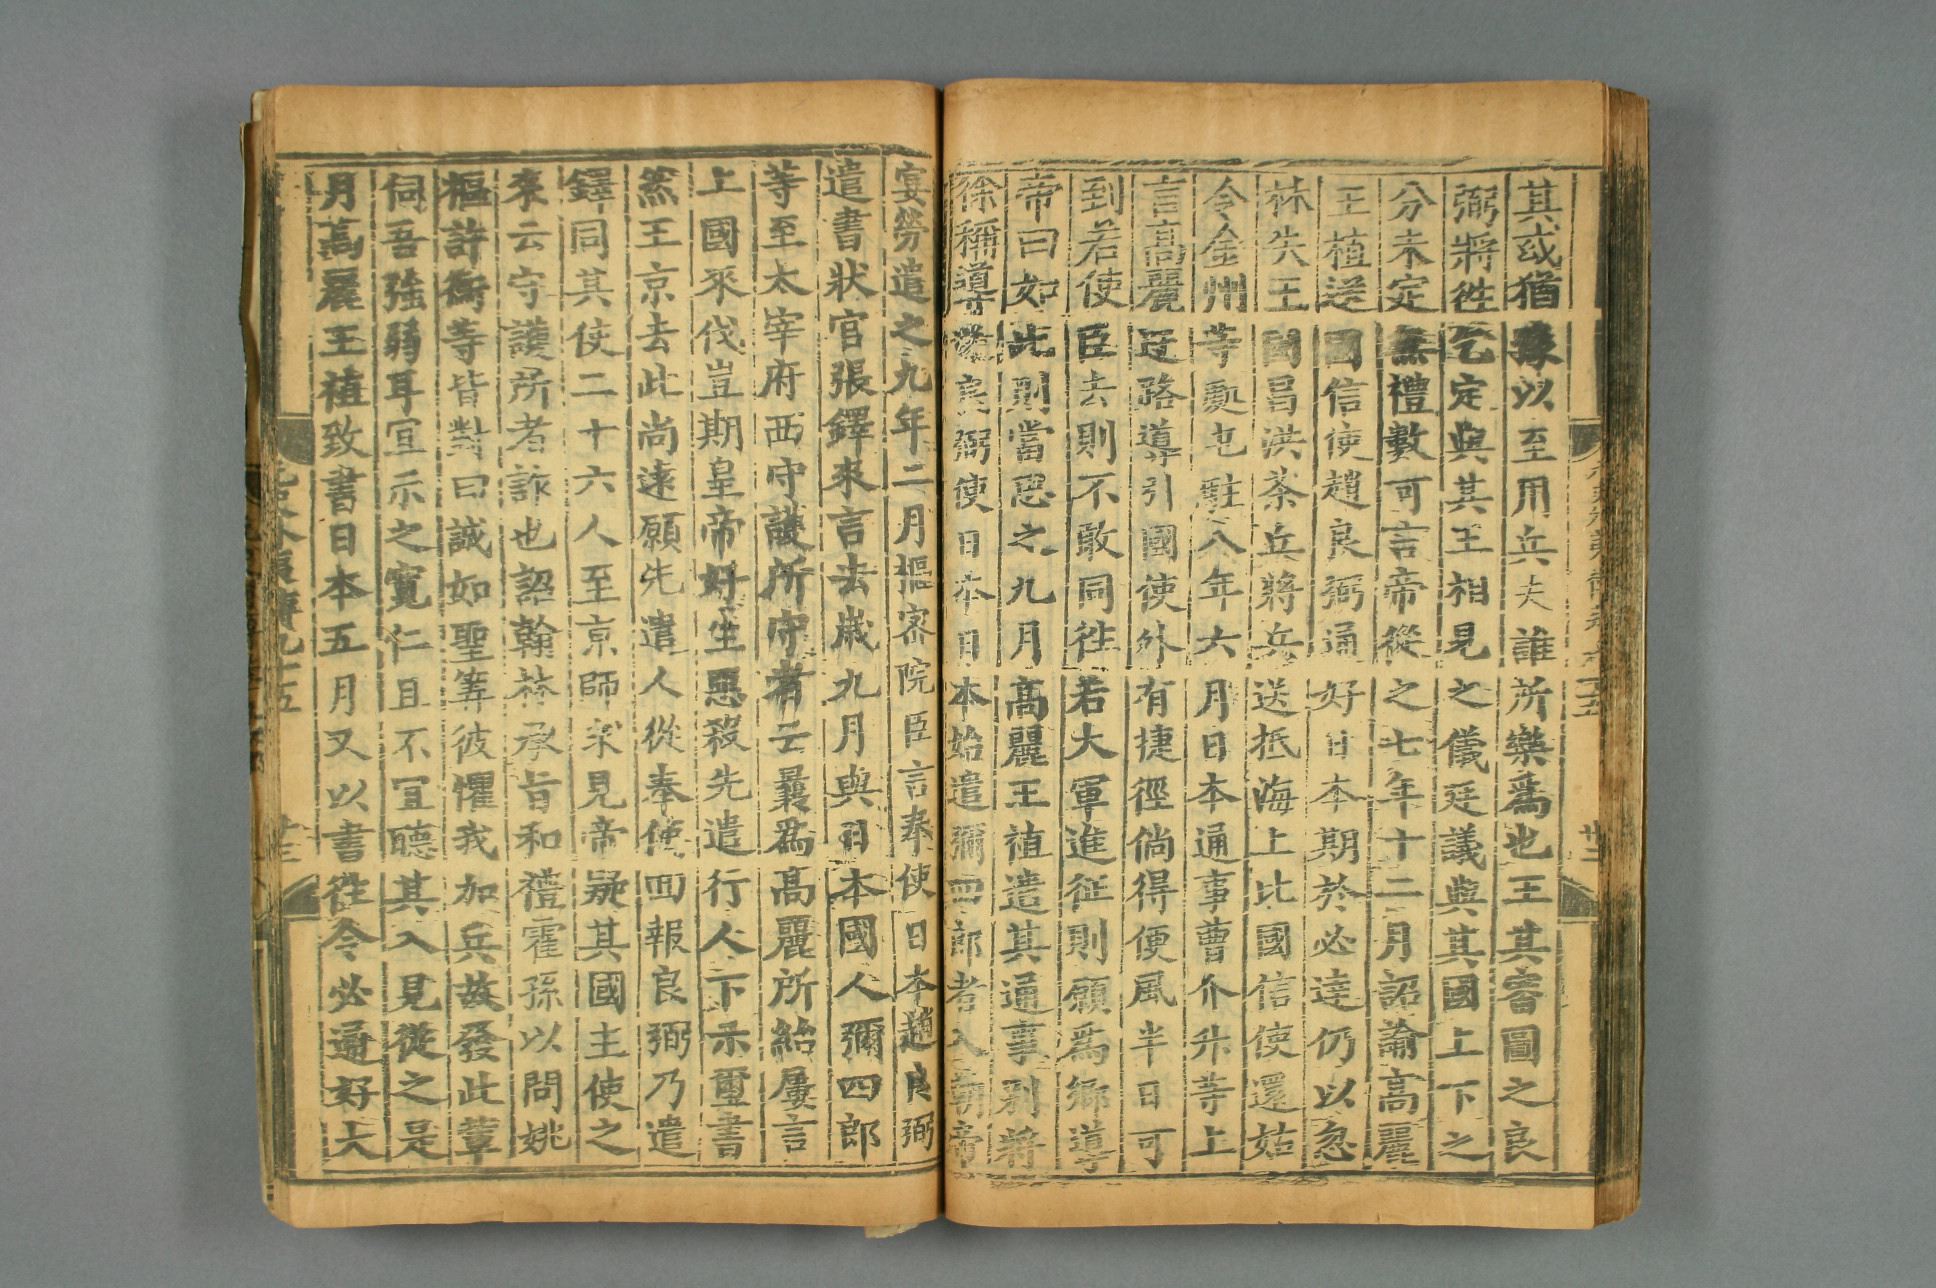 其或猶豫以至用兵夫誰所樂爲也王其審圖之良
弼將徃乞定與其王相見之儀廷議與其國上下之
分未定無禮數可言帝從之七年十二月詔諭高麗
王植送國信使趙良弼通好日本期於必達仍以忽
林失王國昌洪茶丘將兵送抵海上比國信使還姑
令金州等處屯駐八年六月日本通事曹介升等上
言高麗迂路導引國使外有捷徑倘得便風半日可
到若使臣去則不敢同徃若大軍進征則願爲鄉導
帝曰如此則當思之九月高麗王植遣其通事别將
徐稱導送良弼使日本日本始遣彌四郎者入朝帝
宴勞遣之九年二月樞密院臣言奉使日本趙良弼
遣書狀官張鐸來言去歲九月與日本國人彌四郎
等至太宰府西守護所守者云曩爲高麗所紿屢言
上國來伐豈期皇帝好生惡殺先遣行人下示璽書
然王京去此尚遠願先遣人從奉使囬報良弼乃遣
鐸同其使二十六人至京師求見帝疑其國主使之
來云守護所者詐也詔翰林承旨和禮霍孫以問姚
樞許衡等皆對曰誠如聖筭彼懼我加兵故發此輩
伺吾強弱耳宜示之寬仁且不宜聽其入見從之是
月高麗王植致書日本五月又以書徃令必通好大
元史外夷傳九十五
廿三
廿二